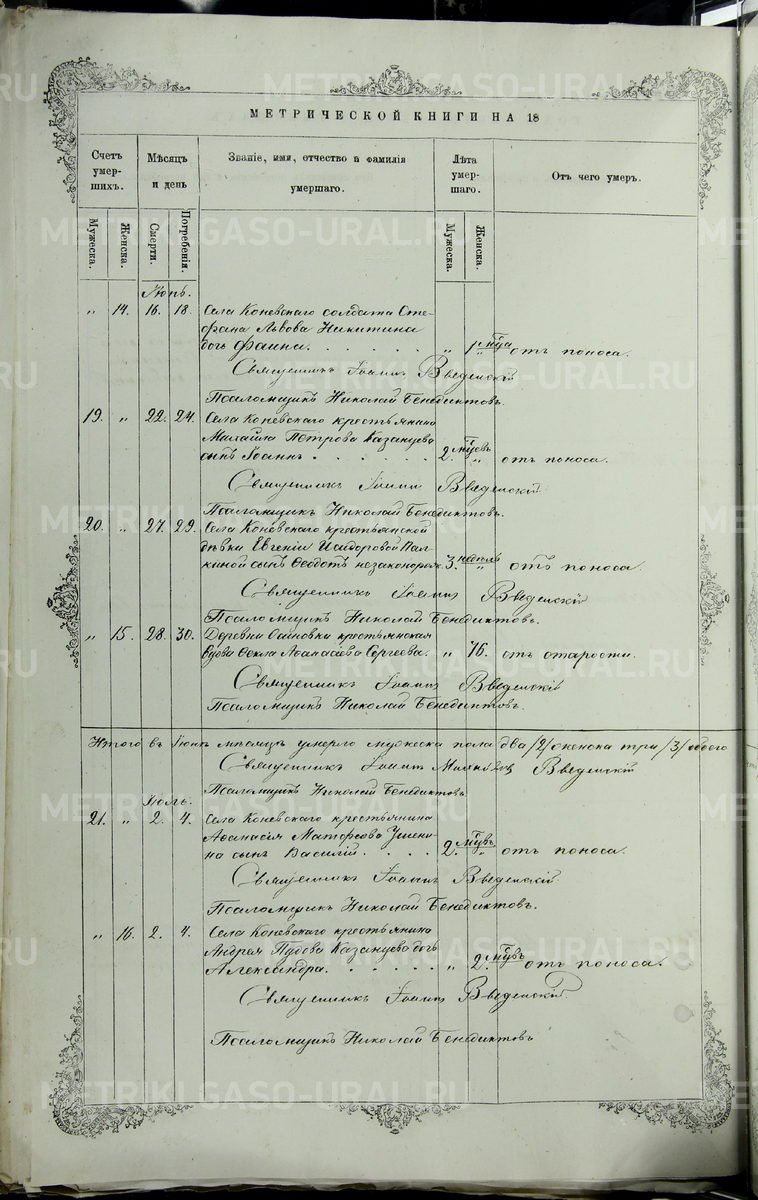 МЕТРИЧЕСКОЙ КНИГИ НА 18
Счетъ умер- шихъ.
Мѣсяцъ и день
Званіе, имя, отчество и фамилія умершаго.
Лѣта умер- шаго.
Отъ чего умеръ.
Мужеска. Женска. Смерти. Погребенія. Мужеска. Женска.
Іюнь.
" 14. 16. 18. Села Коневскаго солдата Сте-
фана Львова Никитина
дочь Фаина. " 1 мца отъ поноса.
Священникъ Іоаннъ Введенскій
Псаломщикъ Николай Бенедиктовъ.
19. " 22. 24. Села Коневскаго крестьянина
Михаила Петрова Казанцева
сынъ Іоаннъ. 2. мцевъ " отъ поноса.
Священникъ Іоаннъ Введенскій
Псаломщикъ Николай Бенедиктовъ.
20. " 27. 29. Села Коневскаго крестьянской
дѣвки Евгеніи Исидоровой Пал-
киной сынъ Ѳеодотъ незаконорож. 3. недѣль " отъ поноса.
Священникъ Іоаннъ Введенскій
Псаломщикъ Николай Бенедиктовъ.
" 15. 28. 30. Деревни крестьянская
вдова Ѳекла Аѳанасіева Сергеева. " 76. отъ старости.
Священникъ Іоаннъ Введенскій
Псаломщикъ Николай Бенедиктовъ.
Итого въ Іюнѣ мѣсяцѣ умерло мужеска пола два /2/ женска три /3/ обоего
Священникъ Іоаннъ Введенскій
Псаломщикъ Николай Бенедиктовъ
Іюль.
21. " 2. 4. Села Коневскаго крестьянина
Аѳанасія Матѳеева
сынъ Василій. 2. мцевъ " отъ поноса.
Священникъ Іоаннъ Введенскій
Псаломщикъ Николай Бенедиктовъ.
" 16. 2. 4. Села Коневскаго крестьянина
Андрея Казанцева дочь
Александра. " 2. мцевъ отъ поноса.
Священникъ Іоаннъ Введенскій.
Псаломщикъ Николай Бенедиктовъ
METRIKI.GASO-URAL.RU